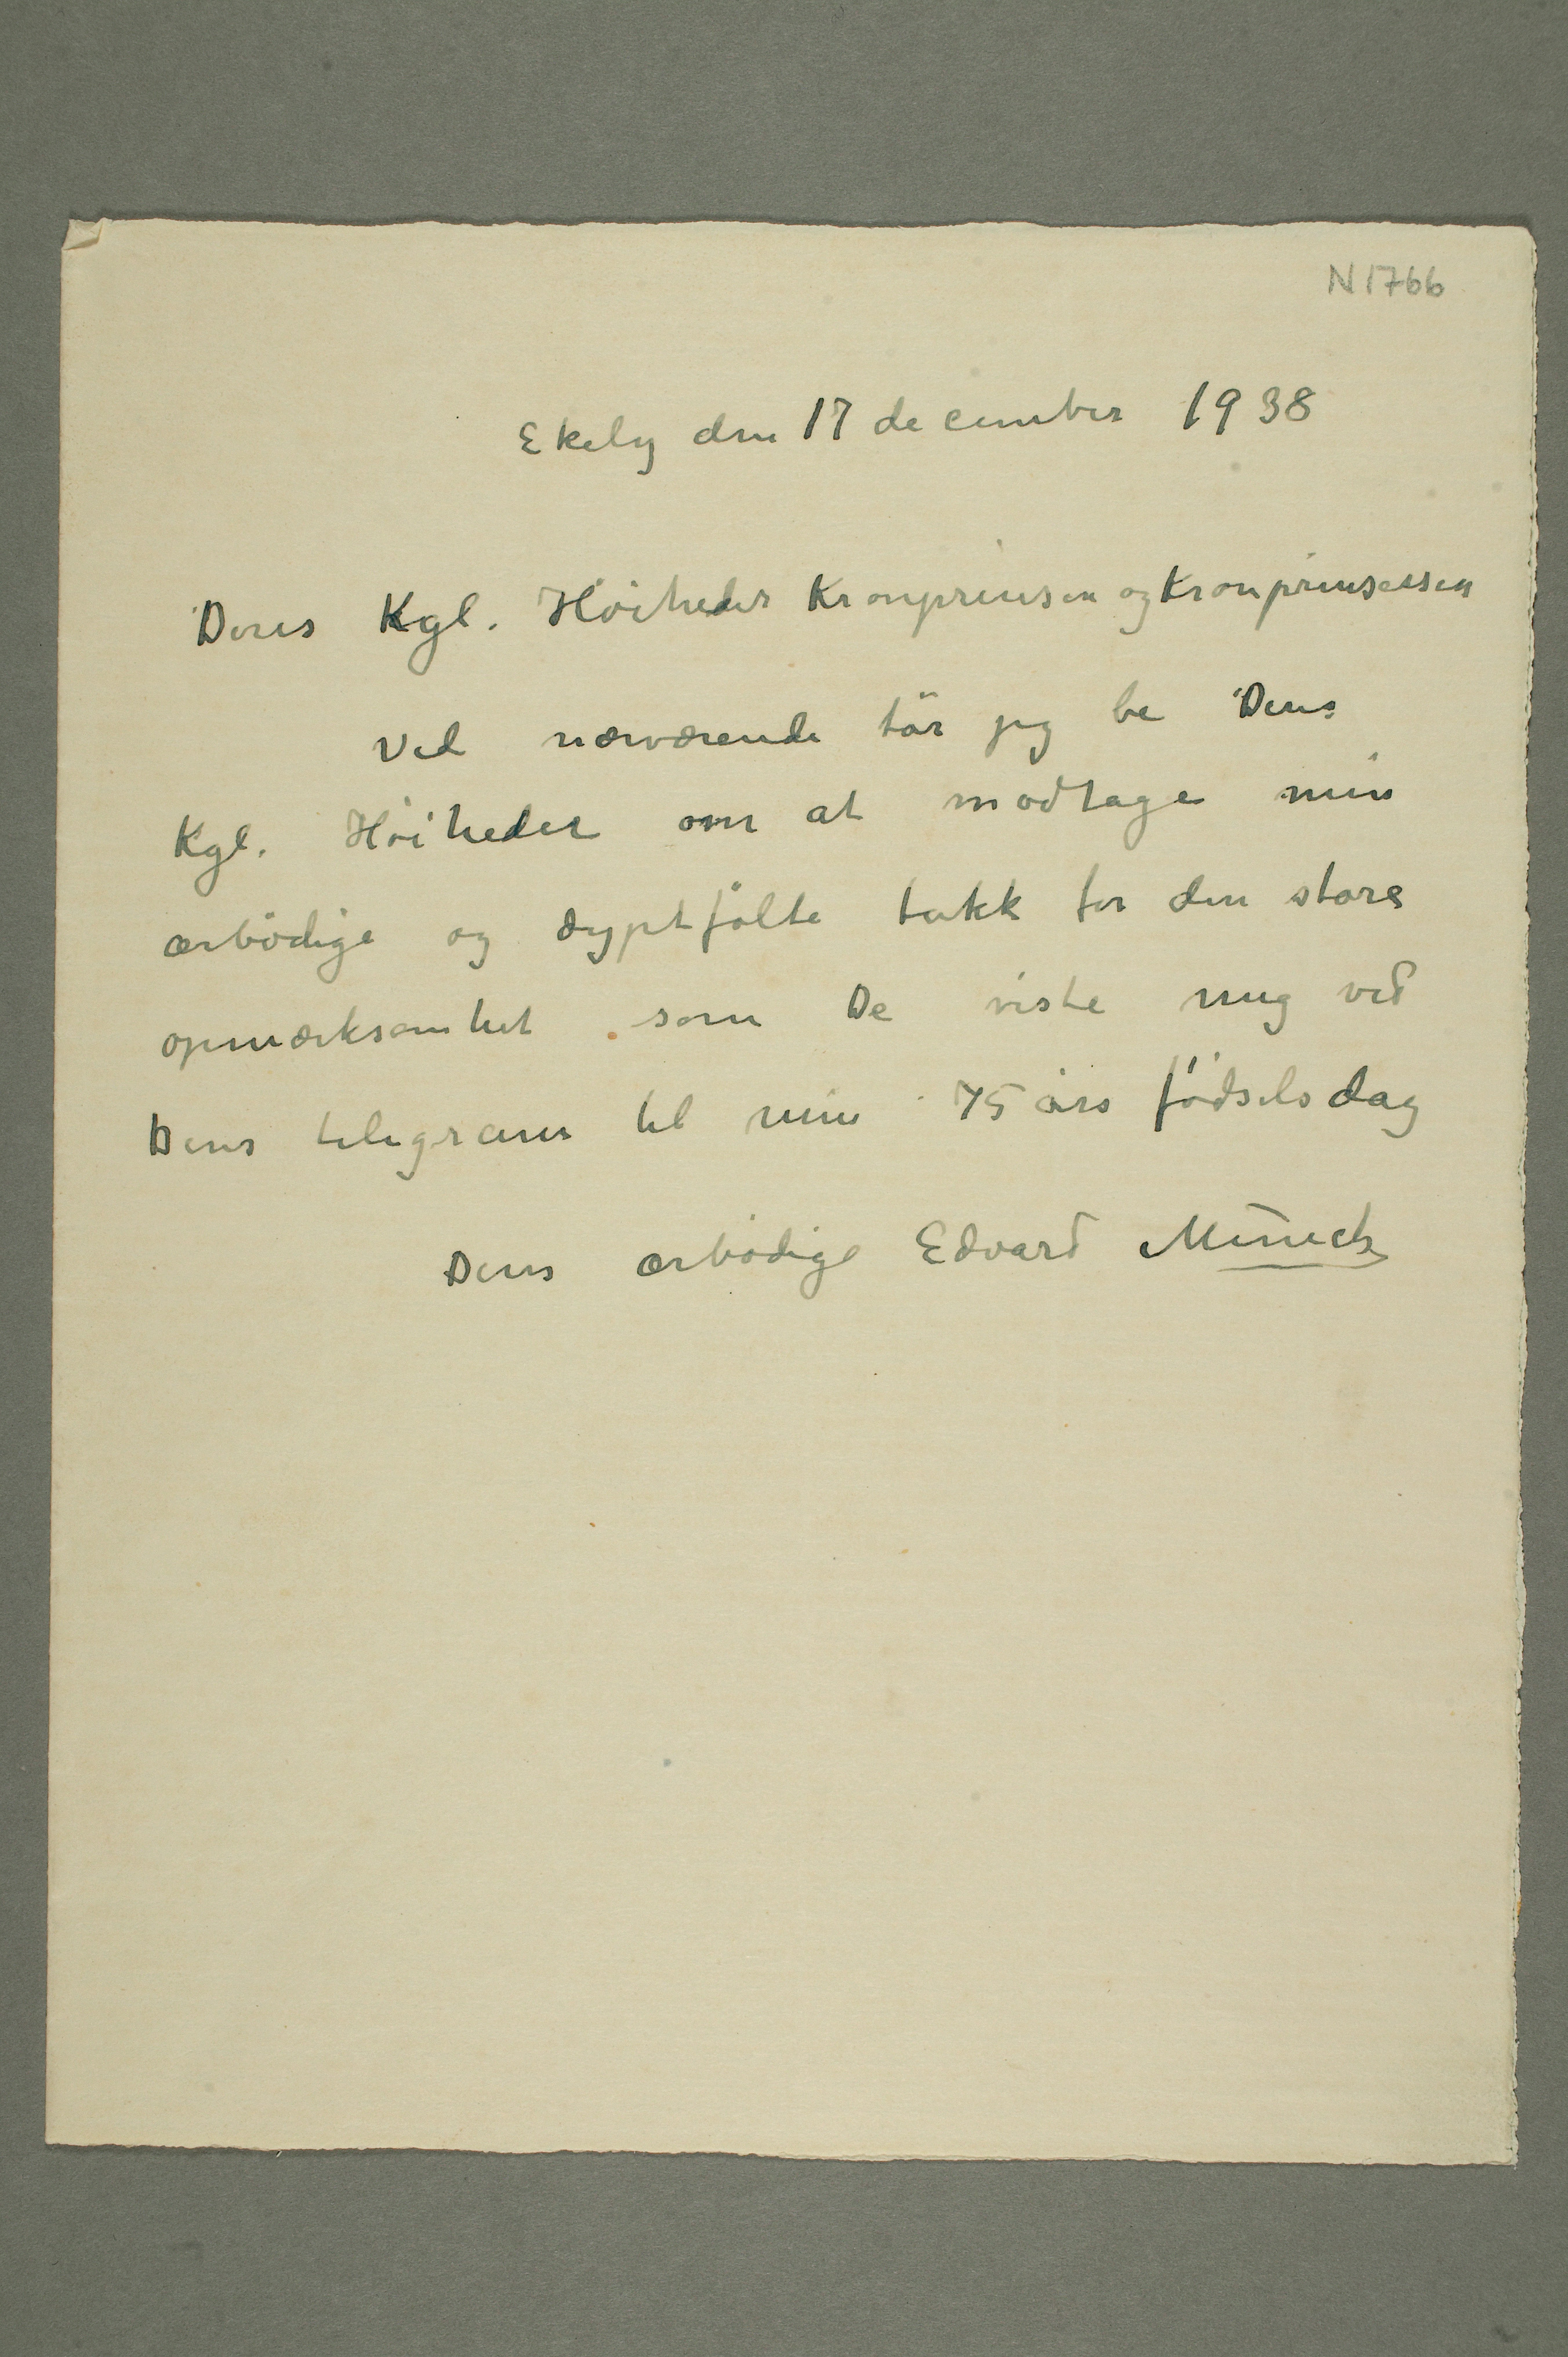 N 1766
Ekely den 17 december 1938
Deres Kgl. Höiheder Kronprinsen og Kronprinsessen
Ved nærværende tör jeg be Deres
Kgl. Höiheder om at modtage min
ærbödige og dyptfölte takk for den store
opmærksomhet som De viste mig ved
Deres telegram til min 75 års födselsdag
Deres ærbödige Edvard Munch